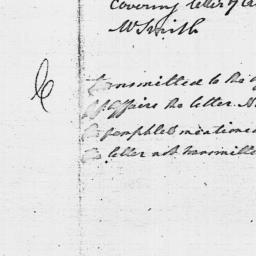 Covering letter of
Mr Smith
transmitted to the
of Affairs the letter.
pamphlet mentioned
letter not transmitted